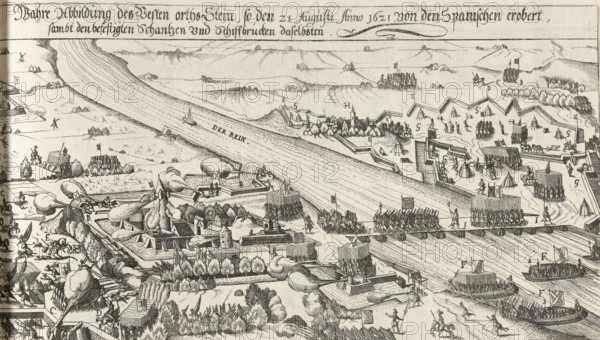 Wahre Abbildung des Vesten orths Stein, so den 21 Augusti Anno 1621 von den Spanischen erobert,
sambt den befestigten Schantzen und Schiffbrucken daselbsten
DER REIN
H
G
G
F
F
PHOTO12